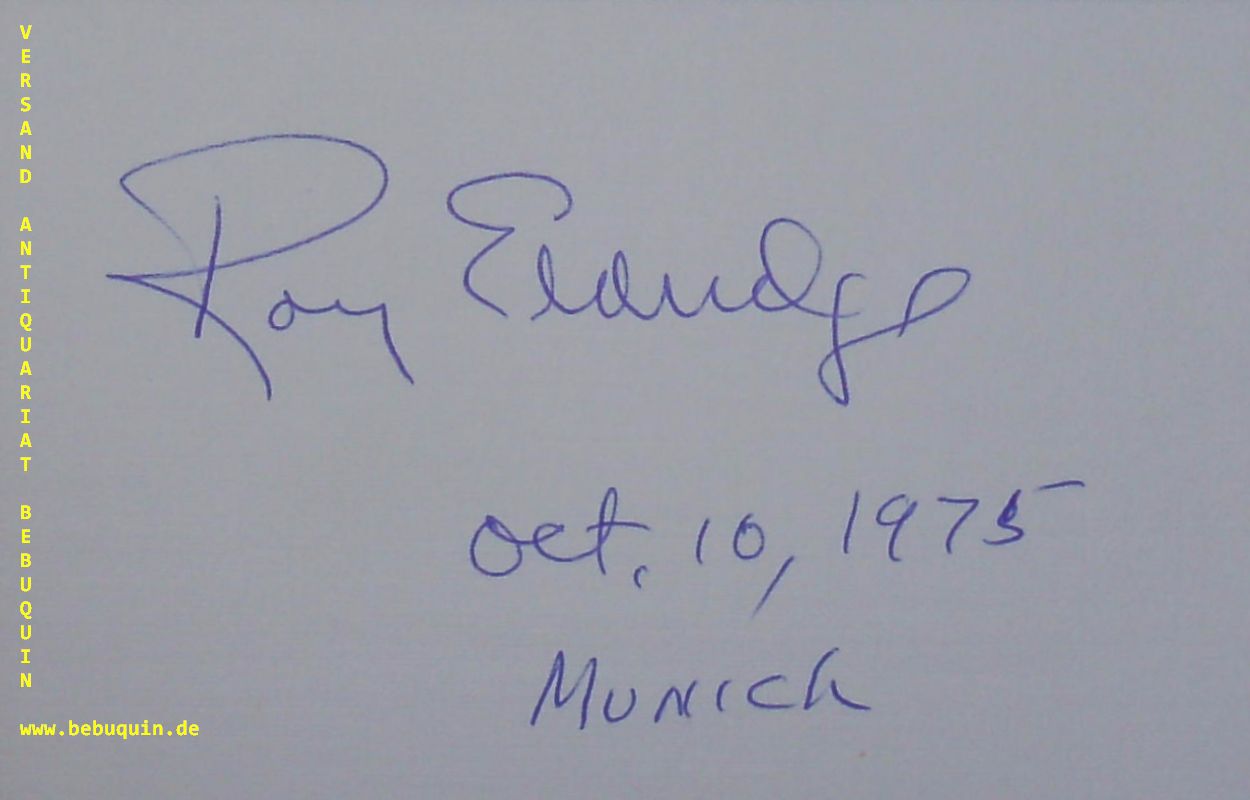 VERSAND ANTIQUARIAT BEBUQUIN
Roy Eldridge
Oct. 10, 1975
Munich
www.bebuquin.de